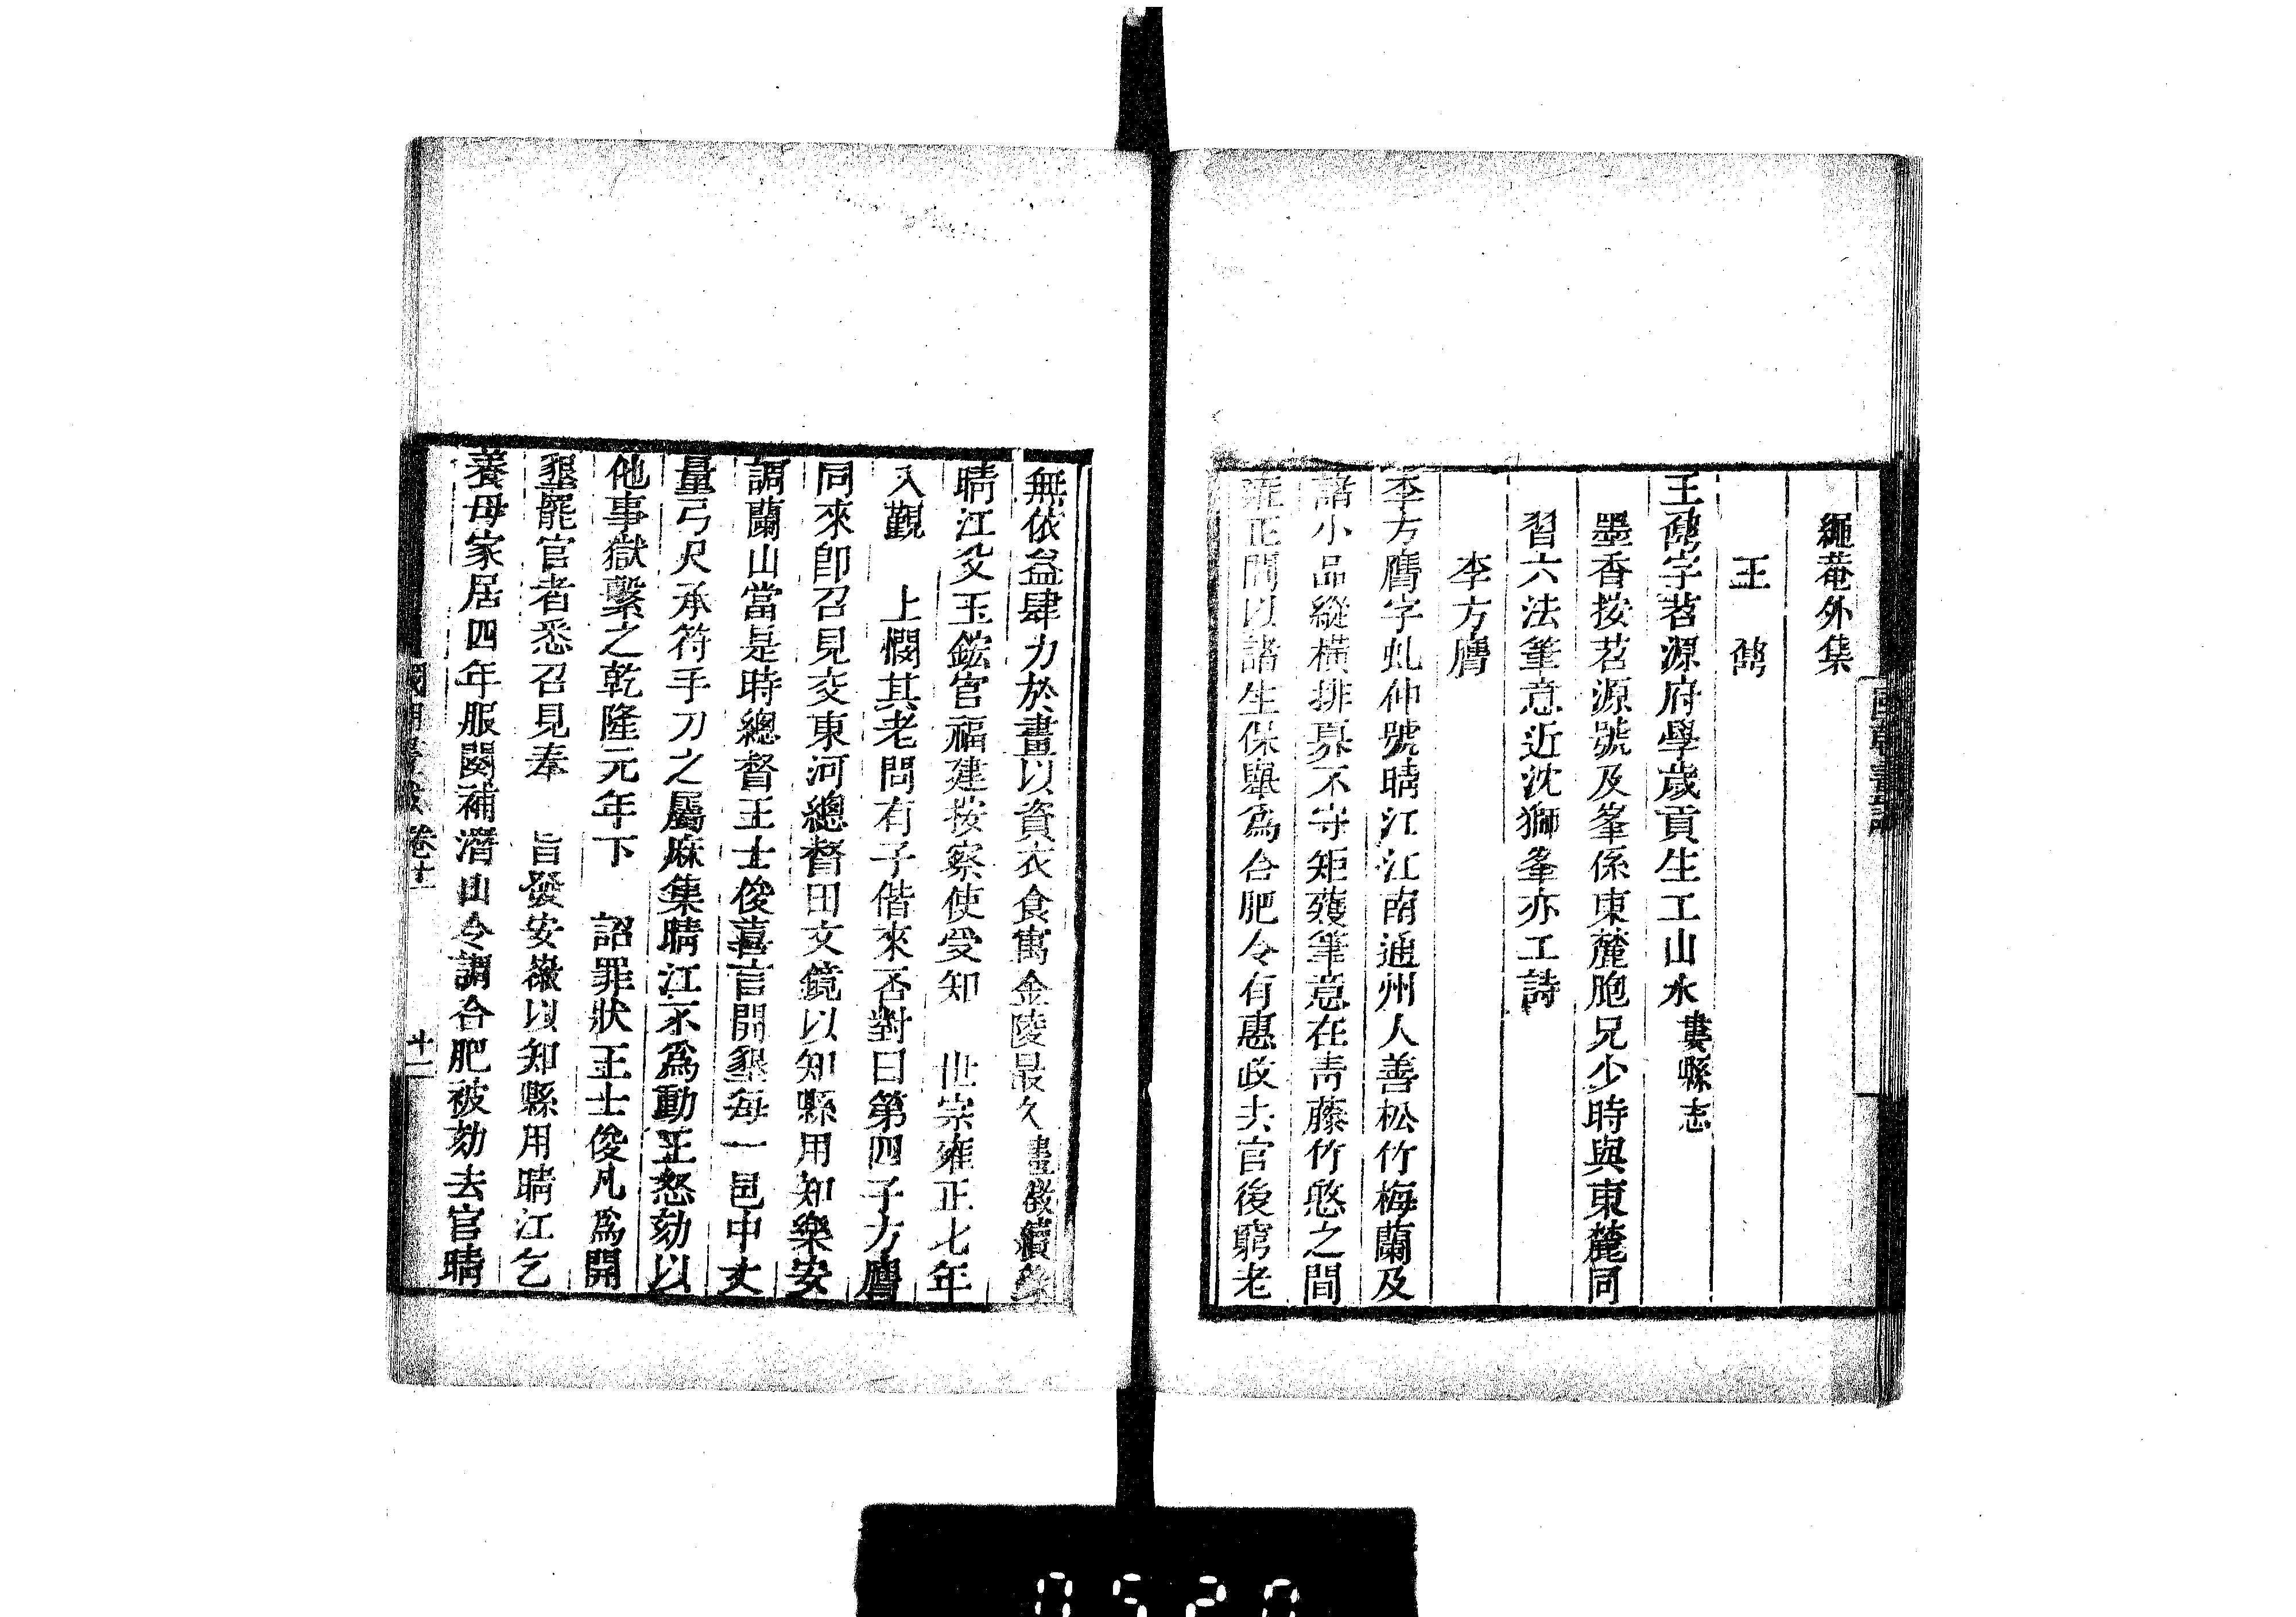 繩菴外集
王 儁
王儁字茗源府學歲貢生工山水婁縣志
墨香按茗源號及峯係東麓胞兄少時與東麓同
習六法筆意近沈獅峯亦工詩
李方膺
李方膺字虬仲號晴江江南通州人善松竹梅蘭及
諸小品縱橫排奡不守矩矱筆意在青藤竹憨之間
雍正間以諸生保舉爲合肥令有惠政去官後窮老
無依益肆力於畫以資衣食寓金陵最久畫徵續錄
晴江父玉鋐官福建按察使受知 世宗雍正七年
入覲 上憫其老問有子偕來否對曰第四子方膺
同來卽召見交東河總督田文鏡以知縣用知樂安
調蘭山當是時總督王士俊喜言開墾每一邑中丈
量弓尺承符手力之屬麻集晴江不爲動王怒劾以
他事獄繫之乾隆元年下 詔罪狀王士俊凡爲開
墾罷官者悉召見奉 旨發安徽以知縣用晴江乞
養母家居四年服闋補潛山令調合肥被劾去官晴
卷廿二
廿一
0520